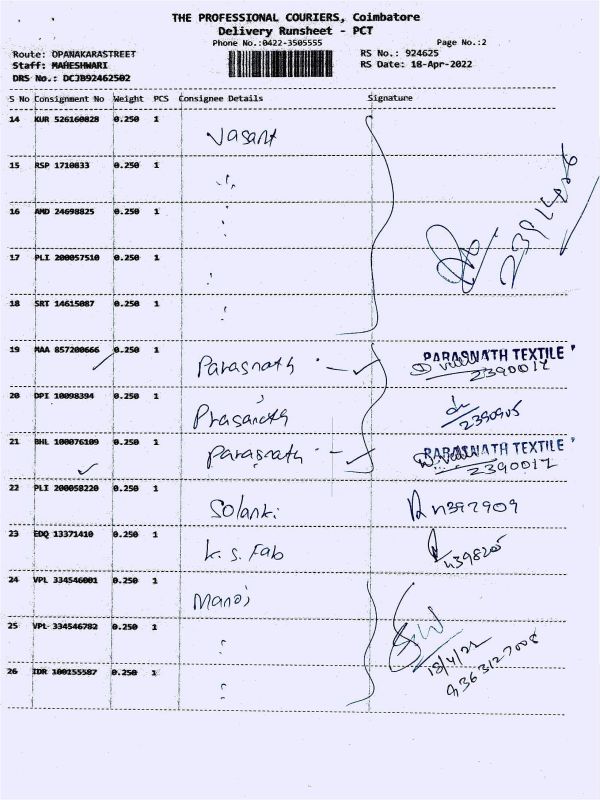 THE PROFESSIONAL COURIERS, Coimbatore
Delivery Runsheet - PCT
Phone No.:0422-3505555 Page No.:2
Route: OPANAKARASTREET RS No.: 924625
Staff: MAHESHWARI RS Date: 18-Apr-2022
DRS No.: DCJB92462502
S No Consignment No Weight PCS Consignee Details Signature
14 KUR 526160828 0.250 1 Vasant
15 RSP 1710833 0.250 1 "
16 AMD 24698825 0.250 1 "
17 PLI 200057510 0.250 1 "
18 SRT 14615087 0.250 1 "
19 MAA 857200666 0.250 1 Parasnath PARASNATH TEXTILE
2390017
20 DPI 10098394 0.250 1 Prasanth
2390905
21 BHL 100076109 0.250 1 Parasnath PARASNATH TEXTILE
2390017
22 PLI 200058220 0.250 1 Solanki
23 EDQ 13371410 0.250 1 K. S. Fab
24 VPL 334546001 0.250 1 Manoj
25 VPL 334546782 0.250 1 "
18/4/22
26 IDR 100155587 0.250 1 "